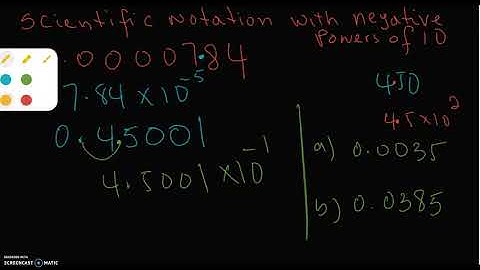 Scientific Notation with negative
Powers of 10
.0000784
7.84 x 10^-5
0.45001
4.5001 x 10^-1
450
4.5 x 10^2
a) 0.0035
b) 0.0385
RECORDED WITH
SCREENCAST MATIC